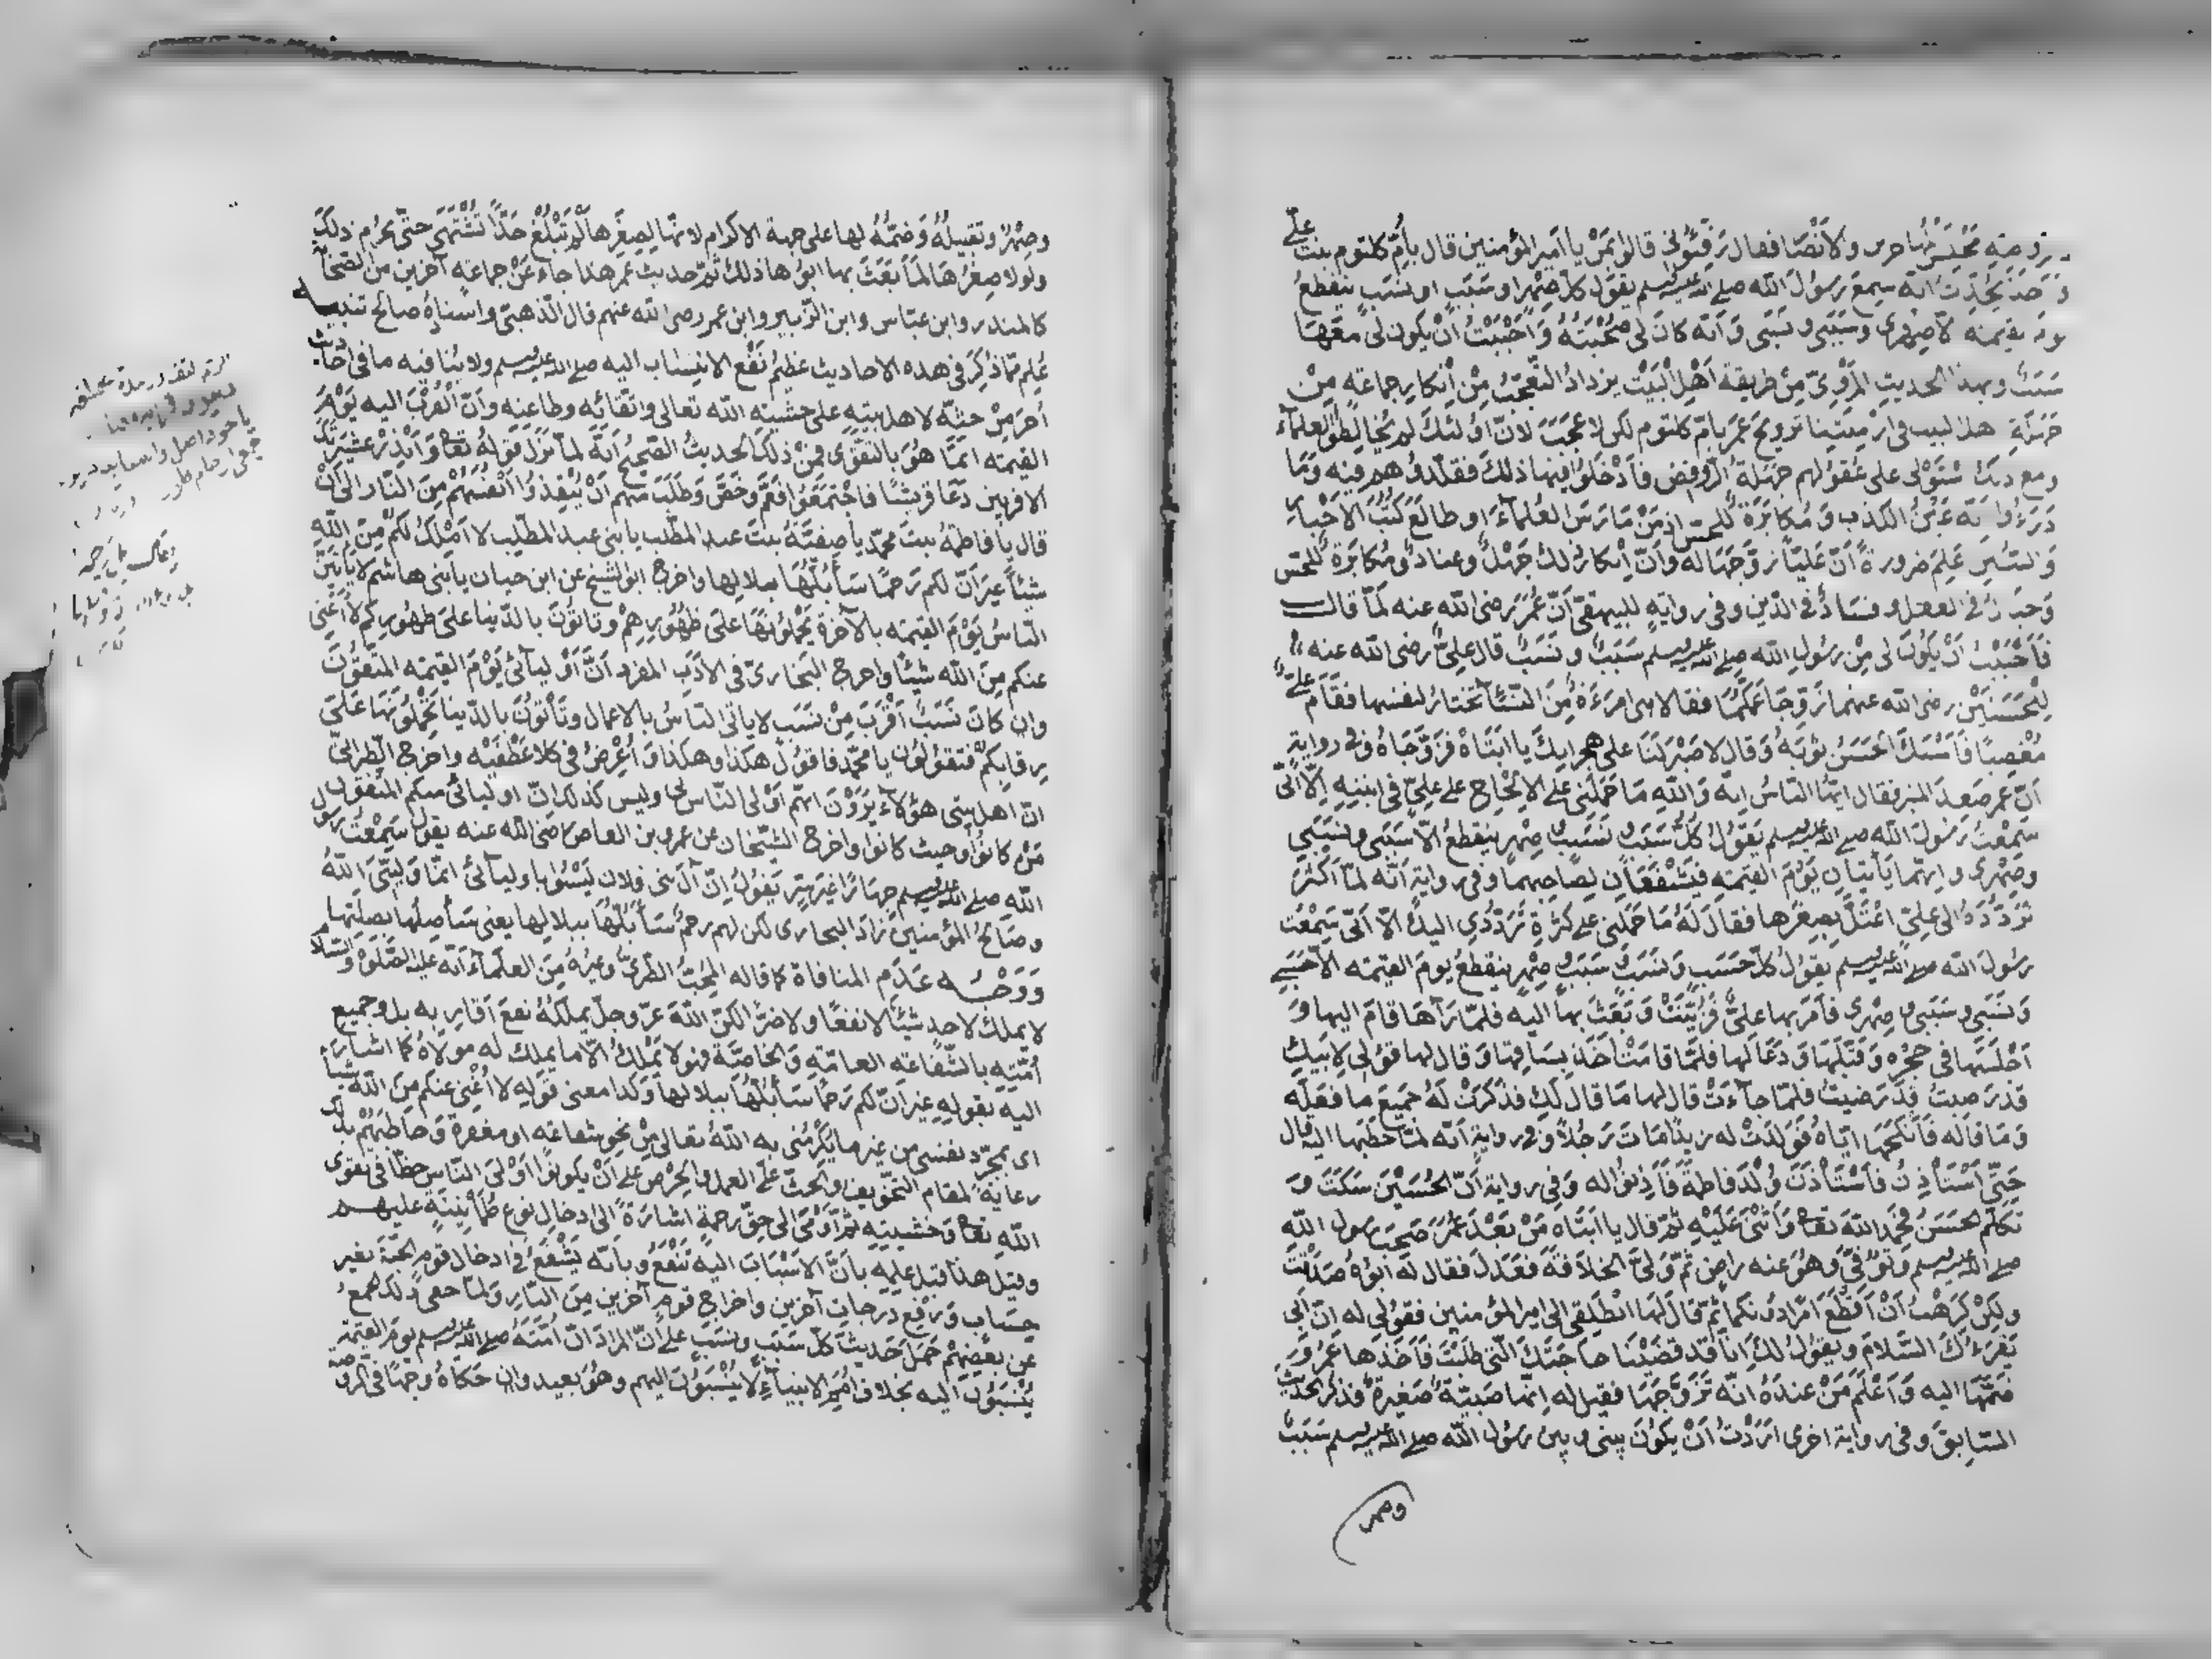 والأنصار فقال رفئوني قالوا بمن يا أمير المؤمنين قال بأم كلثوم بنت علي
يحدث أنه سمع رسول الله صلى الله عليه وسلم يقول كل صهر أو سبب أو نسب ينقطع
يوم القيمة إلا صهري وسببي ونسبي وأنه كان لي صحبته وأحببت أن يكون لي معها
سبب وبهذا الحديث المروي من طريقة أهل البيت يزداد التعجب من إنكار جماعة من
جهلة أهل البيت في أزمنتنا تزويج عمر بأم كلثوم لكن لا عجب لأن أولئك لم يخالطوا العلماء
ومع ذلك استولى على عقولهم جهلة الروافض فأدخلوا فيها ذلك فقلدوهم فيه وما
دروا أنه عين الكذب ومكابرة للحس إذ من مارس العلماء أو طالع كتب الأخبار
والسنن علم ضرورة أن عليا زوجها له وأن إنكار ذلك جهل وعناد ومكابرة للحس
وخبال في العقل وفساد في الدين وفي رواية للبيهقي أن عمر رضي الله عنه لما قال
فأحببت أن يكون لي من رسول الله صلى الله عليه وسلم سبب ونسب قال علي رضي الله عنه
للحسنين رضي الله عنهما زوجا عمكما فقالا هي امرءة من النساء تختار لنفسها فقام علي
مغضبا فأمسك الحسن ثوبه وقال لا صبر لنا على هجرانك يا أبتاه فزوجاه وفي رواية
أن عمر صعد المنبر فقال أيها الناس إنه والله ما حملني على الإلحاح على علي في ابنته إلا أني
سمعت رسول الله صلى الله عليه وسلم يقول كل سبب ونسب وصهر ينقطع إلا سببي ونسبي
وصهري وإنهما يأتيان يوم القيمة فيشفعان لصاحبهما وفي رواية أنه لما أكثر
تردده إلى علي اعتل بصغرها فقال له ما حملني على كثرة ترددي إليك إلا أني سمعت
رسول الله صلى الله عليه وسلم يقول كل حسب ونسب وسبب وصهر ينقطع يوم القيمة إلا حسبي
ونسبي وسببي وصهري فأمر بها علي فزينت وبعث بها إليه فلما رآها قام إليها و
أجلسها في حجره وقبلها ودعا لها فلما قامت أخذ بساقها وقال لها قولي لأبيك
قد رضيت قد رضيت فلما جاءت قال لها ما قال لك فذكرت له جميع ما فعله
وما قاله فأنكحها إياه فولدت له زيدا مات رجلا وفي رواية أنه لما خطبها إليه قال
حتى أستأذن فاستأذن ولد فاطمة فأذنوا له وفي رواية أن الحسين سكت و
تكلم الحسن فحمد الله تعا وأثنى عليه ثم قال يا أبتاه من بعد عمر صحب رسول الله
صلى الله عليه وسلم وتوفي وهو عنه راض ثم ولي الخلافة فعدل فقال له أبوه صدقت
ولكن كرهت أن أقطع أمرا دونكما ثم قال لها انطلقي إلى أمير المؤمنين فقولي له إن أبي
يقرءك السلام ويقول لك إنا قد قضينا حاجتك التي طلبت فأخذها عمر و
ضمها إليه وأعلم من عنده أنه تزوجها فقيل له إنها صبية صغيرة فذكر الحديث
السابق وفي رواية أخرى أردت أن يكون بيني وبين رسول الله صلى الله عليه وسلم سبب
وصهر
وصهر وتقبيله وضمه لها على جهة الإكرام لأنها لصغرها لم تبلغ حدا تشتهى حتى يحرم ذلك
ولولا صغرها لما بعث بها أبوها ذلك ثم حديث عمر هذا جاء عن جماعة آخرين من الصحابة
كالمنذر وابن عباس وابن الزبير وابن عمر رضي الله عنهم قال الذهبي وإسناده صالح تنبيه
علم مما ذكر في هذه الأحاديث عظيم نفع الانتساب إليه صلى الله عليه وسلم ولا ينافيه ما في أحاديث
أخر من حثه لأهل بيته على خشية الله تعالى واتقائه وطاعته وأن القرب إليه يوم
القيمة إنما هو بالتقوى فمن ذلك الحديث الصحيح أنه لما نزل قوله تعا وأنذر عشيرتك
الأقربين دعا قريشا فاجتمعوا فعم وخص وطلب منهم أن ينقذوا أنفسهم من النار إلى أن
قال يا فاطمة بنت محمد يا صفية بنت عبد المطلب يا بني عبد المطلب لا أملك لكم من الله
شيئا غير أن لكم رحما سأبلها ببلالها وأخرج أبو الشيخ عن ابن حبان يا بني هاشم لا يأتين
الناس يوم القيمة بالآخرة يحملونها على ظهورهم وتأتون بالدنيا على ظهوركم لا أغني
عنكم من الله شيئا وأخرج البخاري في الأدب المفرد أن أوليائي يوم القيمة المتقون
وإن كان نسب أقرب من نسب لا يأتي الناس بالأعمال وتأتون بالدنيا تحملونها على
رقابكم فتقولون يا محمد فأقول هكذا وهكذا وأعرض في كلا عطفيه وأخرج الطبراني
إن أهل بيتي هؤلاء يرون أنهم أولى الناس لي وليس كذلك إن أوليائي منكم المتقون
من كانوا وحيث كانوا وأخرج الشيخان عن عمرو بن العاص رضي الله عنه يقول سمعت رسول
الله صلى الله عليه وسلم جهارا غير سر يقول إن آل بني فلان ليسوا بأوليائي إنما وليي الله
وصالح المؤمنين زاد البخاري لكن لهم رحم سأبلها ببلالها يعني سأصلها بصلتها
ووجه عدم المنافاة كما قاله المحب الطبري وغيره من العلماء أنه عليه الصلوة والسلام
لا يملك لأحد شيئا لا نفعا ولا ضرا لكن الله عز وجل يملكه نفع أقاربه بل وجميع
أمته بالشفاعة العامة والخاصة فهو لا يملك إلا ما يملك له مولاه كما أشار
إليه بقوله غير أن لكم رحما سأبلها ببلالها وكذا معنى قوله لا أغني عنكم من الله شيئا
أي بمجرد نفسي من غير ما يكرمني به الله تعالى من نحو شفاعة أو مغفرة وخاطبهم بذلك
رعاية لمقام التخويف والحث على العمل والحرص على أن يكونوا أولى الناس حظا في تقوى
الله تعا وخشيته ثم أومى إلى حق رحمة إشارة إلى إدخال نوع طمأنينة عليهم
وقيل هذا قبل علمه بأن الانتساب إليه تنفع وبأنه يشفع في إدخال قوم الجنة بغير
حساب ورفع درجات آخرين وإخراج قوم آخرين من النار ولما خفي ذلك الجمع
عن بعضهم حمل حديث كل سبب ونسب على أن المراد أن أمته صلى الله عليه وسلم يوم القيمة
ينسبون إليه بخلاف أمم الأنبياء لا ينسبون إليهم وهو بعيد وإن حكاه وجها في الروضة